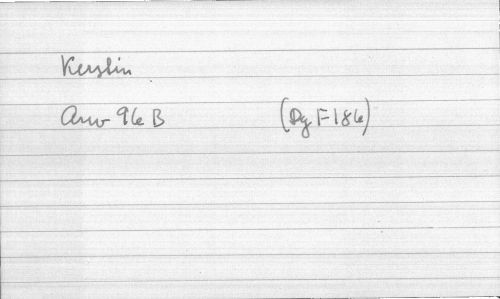 Kerstin
Arw 96 B (Dg F 186)